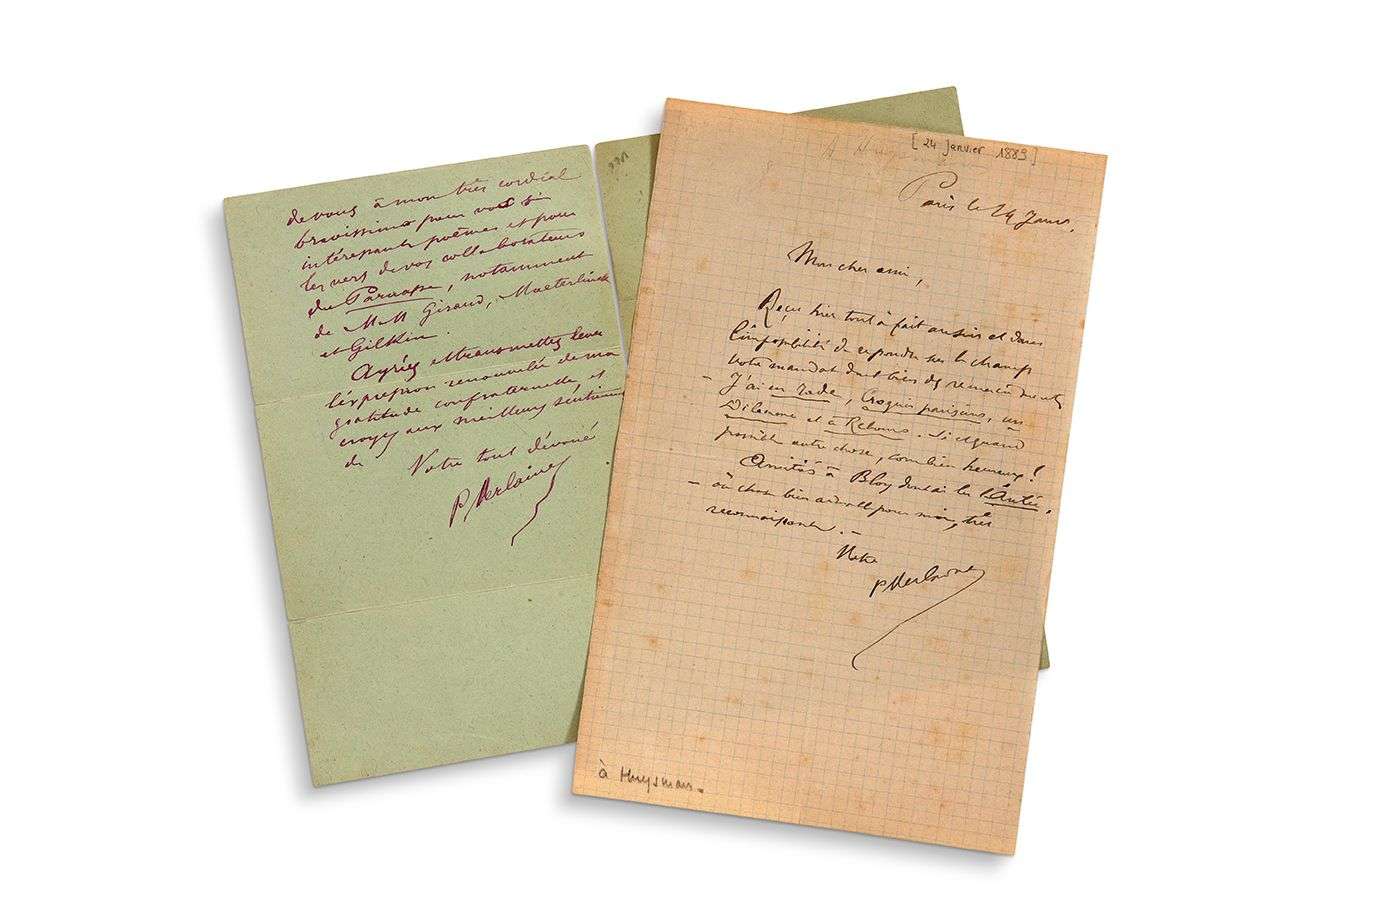 de vous à mon très cordial
bravissimo pour vos si
intéressants poèmes et pour
les vers de vos collaborateurs
du Parnasse, notamment
de MM Giraud, Maeterlinck
et Gilkin.
Agréez et transmettez leur
l'expression renouvelée de ma
gratitude confraternelle, et
croyez aux meilleurs sentiments
de Votre tout dévoué
P Verlaine
[24 janvier 1889]
Paris le 24 Janv.
Mon cher ami,
Reçu hier tout à fait au soir et dans
l'impossibilité de répondre sur le champ
votre mandat dont bien des remerciements
– J'ai en rade, Croquis parisiens, un
Dilemme et à Rebours. Si cependant
possible autre chose, combien heureux!
Amitiés à Bloy dont ai lu
– où chose bien pour moi, très
reconnaissant. –
Votre
P Verlaine
à Huysmans.